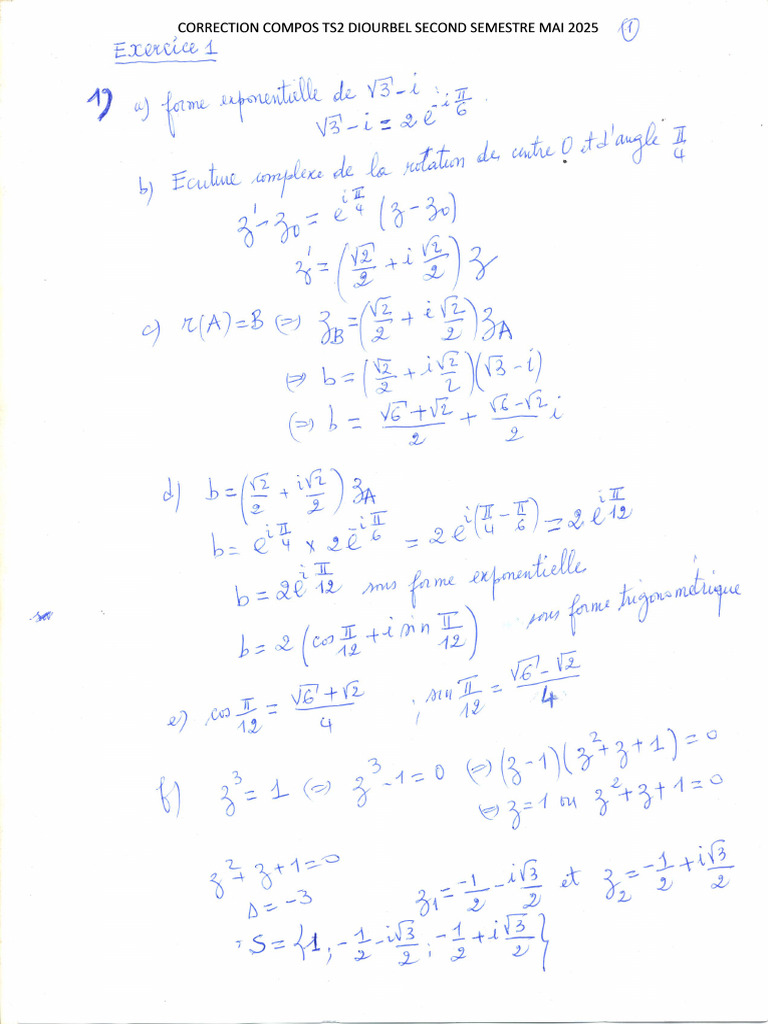 CORRECTION COMPOS TS2 DIOURBEL SECOND SEMESTRE MAI 2025 (1)
Exercice 1
1) a) forme exponentielle de √3 - i :
√3 - i = 2e^(-iπ/6).
b) Ecriture complexe de la rotation de centre O et d'angle π/4
z' - z₀ = e^(iπ/4) (z - z₀)
z' = (√2/2 + i√2/2) z
c) r(A) = B ⇔ z_B = (√2/2 + i√2/2) z_A
⇔ b = (√2/2 + i√2/2)(√3 - i)
⇔ b = (√6 + √2)/2 + (√6 - √2)/2 i
d) b = (√2/2 + i√2/2) z_A
b = e^(iπ/4) × 2e^(-iπ/6) = 2e^(i(π/4 - π/6)) = 2e^(iπ/12)
b = 2e^(iπ/12) sous forme exponentielle
b = 2 (cos π/12 + i sin π/12) sous forme trigonométrique
e) cos π/12 = (√6 + √2)/4 ; sin π/12 = (√6 - √2)/4
f) z³ = 1 ⇔ z³ - 1 = 0 ⇔ (z - 1)(z² + z + 1) = 0
⇔ z = 1 ou z² + z + 1 = 0
z² + z + 1 = 0
Δ = -3 z₁ = -1/2 - i√3/2 et z₂ = -1/2 + i√3/2
S = {1 ; -1/2 - i√3/2 ; -1/2 + i√3/2}